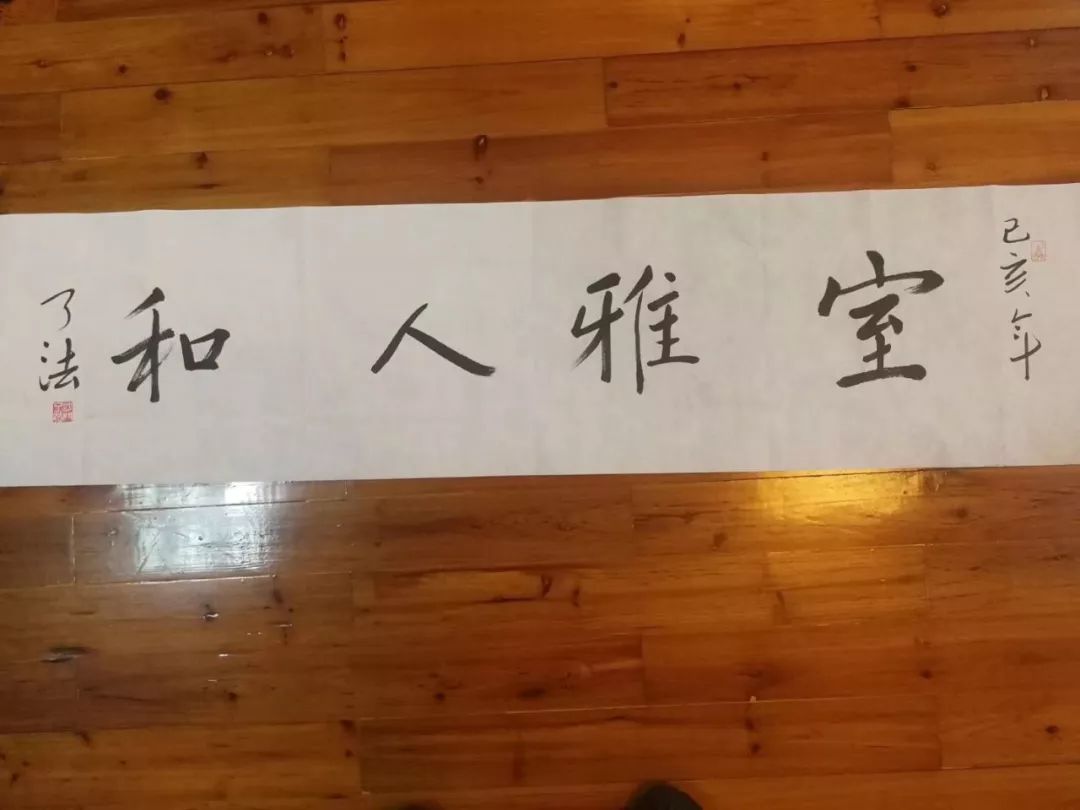 己亥年
室雅人和
了法